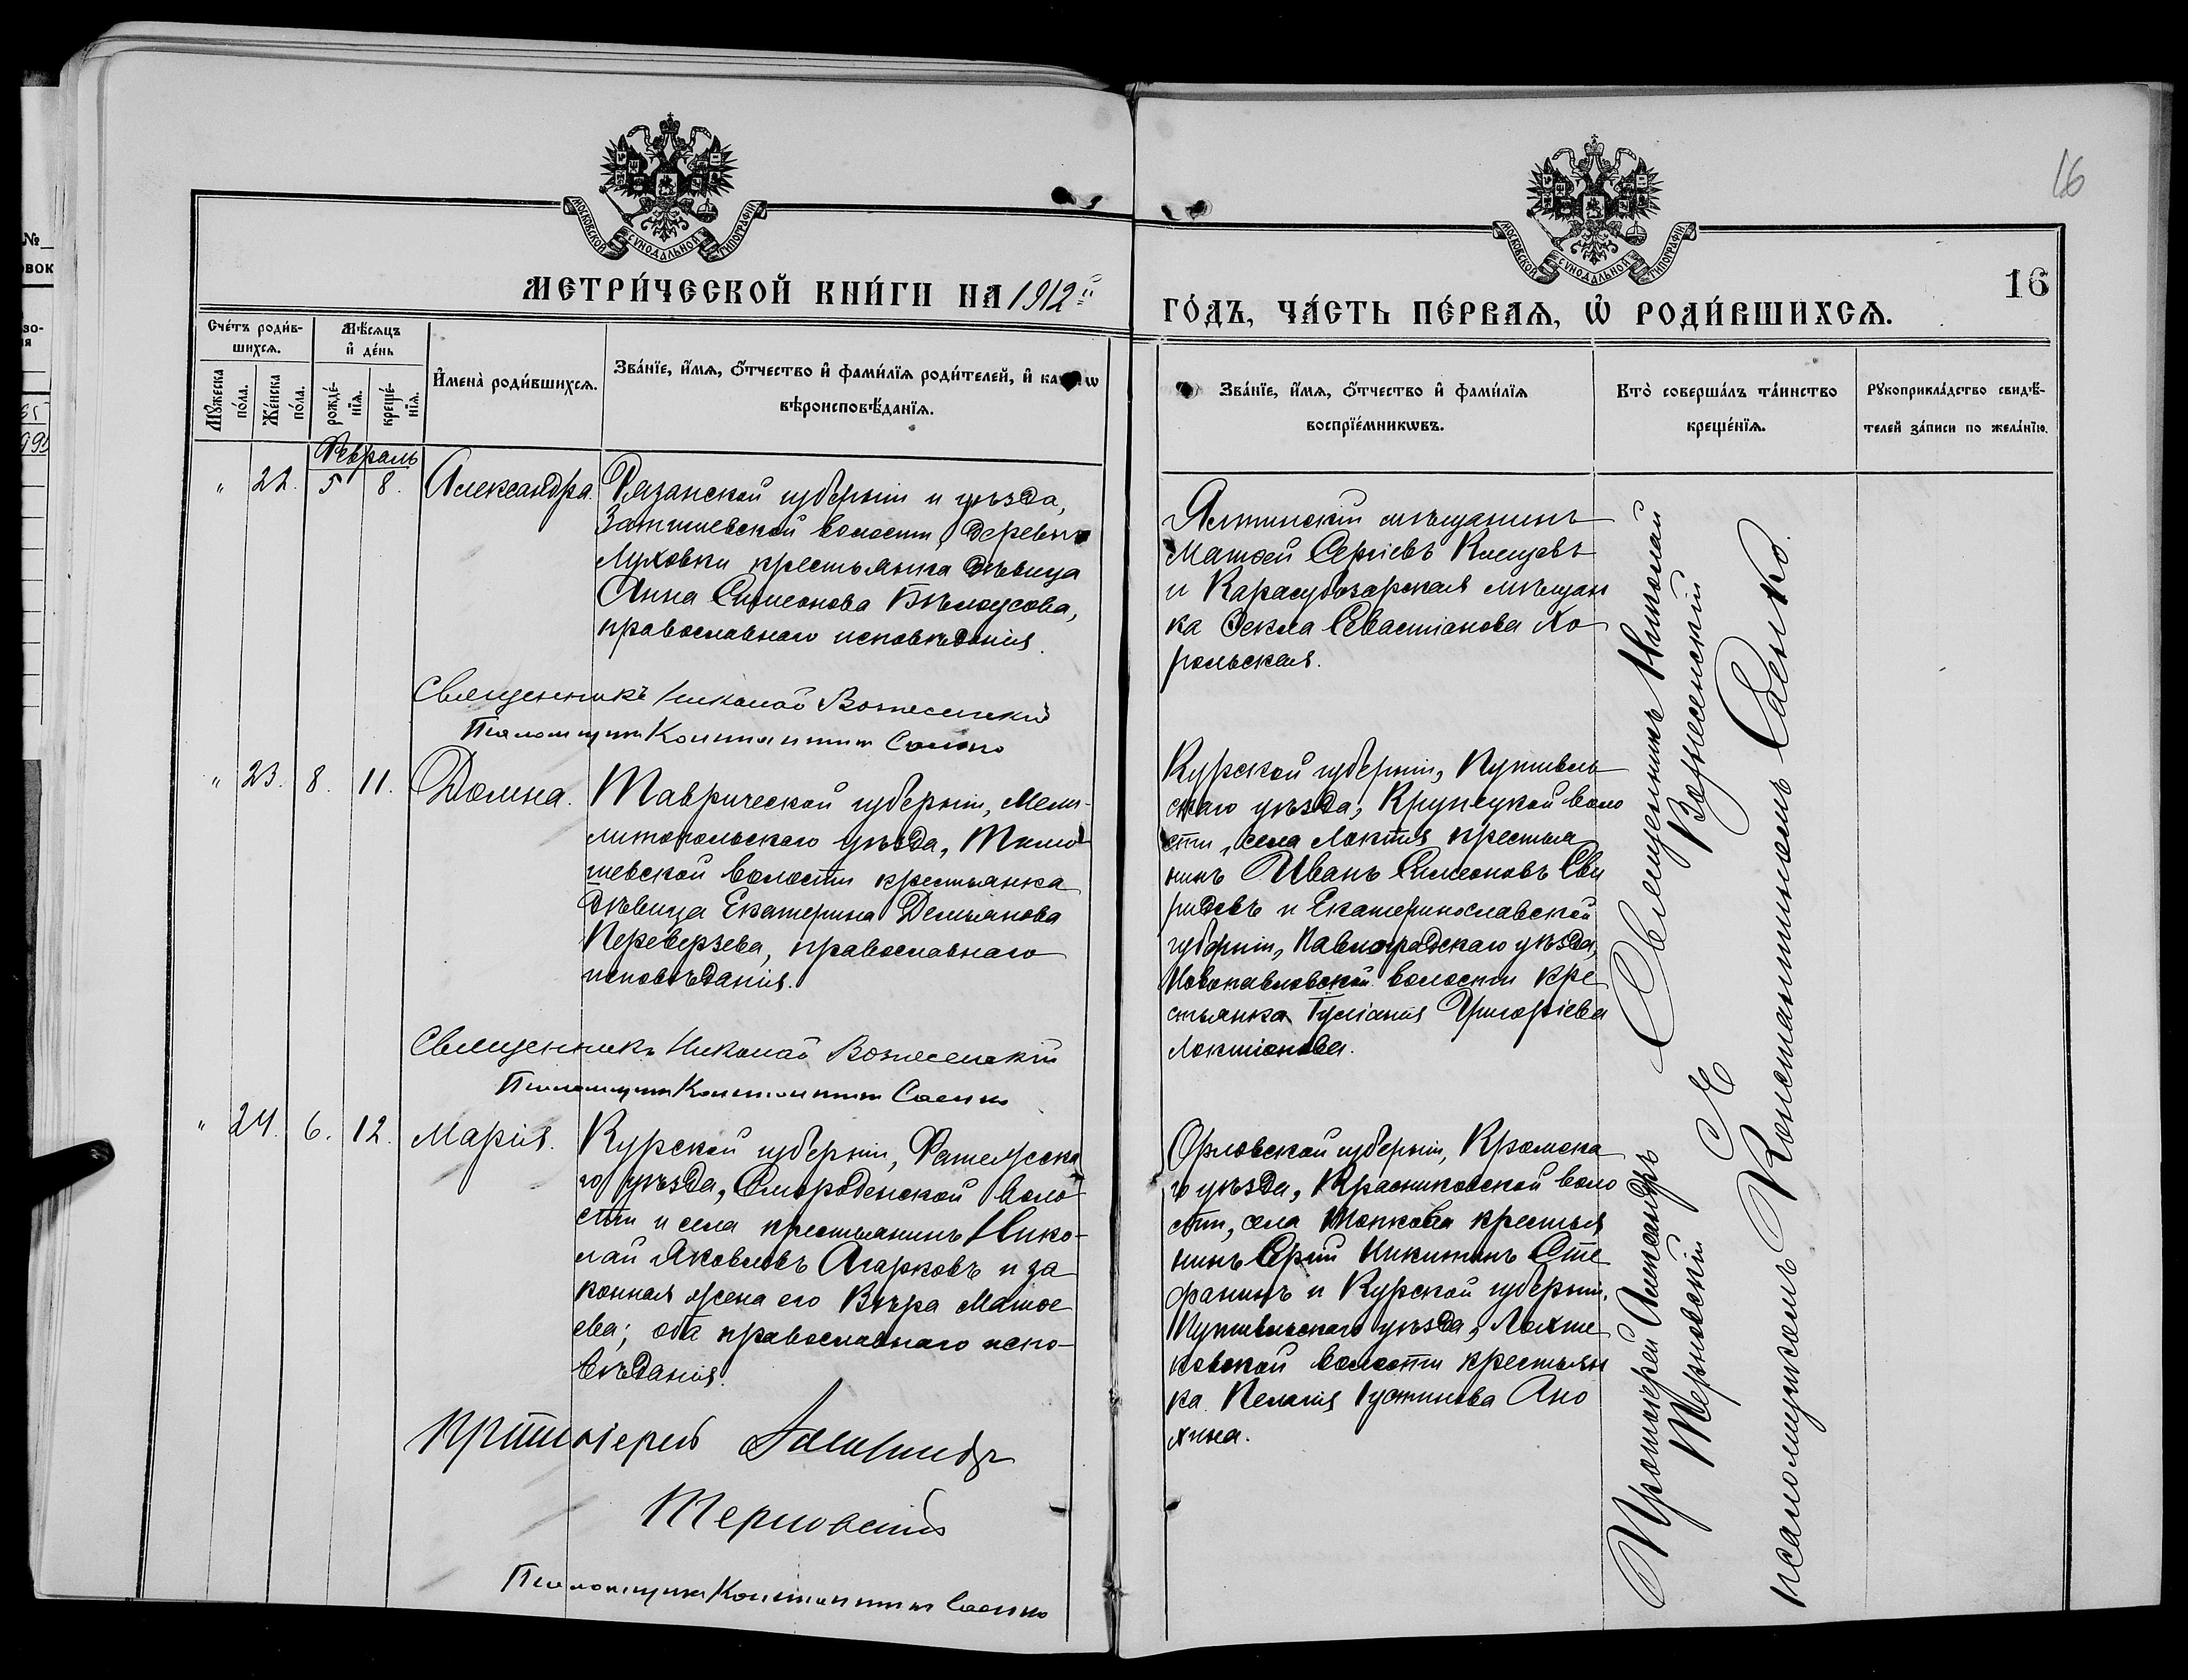 16
МОСКОВСКОЙ СѴНОДАЛЬНОЙ ТИПОГРАФІИ
МОСКОВСКОЙ СѴНОДАЛЬНОЙ ТИПОГРАФІИ
16
МЕТРИ́ЧЕСКОЙ КНИ́ГИ НА 1912й
ГО́ДЪ, ЧА́СТЬ ПЕ́РВАѦ, Ѡ҆ РОДИ́ВШИХСѦ.
Сче́тъ роди́в-
шихсѧ.
Мѣ́сѧцъ
и҆ де́нь
Мꙋ́жеска
по́ла.
Же́нска
по́ла.
рожде́-
нїѧ.
креще́-
нїѧ.
И҆мена̀ роди́вшихсѧ.
Зва́нїе, и҆́мѧ, ѻ҆́тчество и҆ фами́лїѧ роди́телей, и҆ как
вѣроисповѣ́данїѧ.
Зва́нїе, и҆́мѧ, ѻ҆́тчество и҆ фами́лїѧ
воспрїе́мникѡвъ.
Кто̀ соверша́лъ та́инство
креще́нїѧ.
Рꙋкоприкла́дство свидѣ́-
телей за́писи по жела́нїю.
Февраль
" 22. 5 8. Александра.
Рязанской губерніи и уѣзда,
волости, деревни
Луховки крестьянка дѣвица
Анна Симеонова Бѣлоусова,
православнаго исповѣданія.
Священникъ Николай Вознесенскій
Псаломщикъ Константинъ Саенко
Ялтинскій мѣщанинъ
Матѳей Сергіевъ Клецовъ
и Карасубазарская мѣщан
ка Ѳекла Севастіанова Хо
рольская.
" 23. 8. 11. Домна.
Таврической губерніи, Мели-
литопольскаго уѣзда, Тимо
шевской волости крестьянка
дѣвица Екатерина Демьянова
Переверзева, православнаго
исповѣданія.
Священникъ Николай Вознесенскій
Псаломщикъ Константинъ Саенко
Курской губерніи, Путивль
скаго уѣзда, Крупецкой воло
сти, села Локтя крестья
нинъ Иванъ Симеоновъ Сви
ридовъ и Екатеринославской
губерніи, Павлоградскаго уѣзда,
Новопавловской волости кре
стьянка Іуліанія Григоріева
Локтіонова.
" 24. 6. 12. Марія.
Курской губерніи, Фатежска
го уѣзда, Смороденской воло
сти и села крестьянинъ Нико-
лай Яковлевъ Агарковъ и за
конная жена его Вѣра Матѳе
ева; оба православнаго испо-
вѣданія.
Протоіерей Александръ
Терновскій
Псаломщикъ Константинъ Саенко
Орловской губерніи, Кромска
го уѣзда, Красниковской воло
сти, села крестья
нинъ Сергій Никитинъ Сте
фанинъ и Курской губерніи,
Путивльскаго уѣзда,
волости крестьян
ка Пелагія Іустинова Ано
хина.
Священникъ Николай
Вознесенскій
Протоіерей Александръ
Терновскій С
псаломщикомъ Константиномъ Саенко.